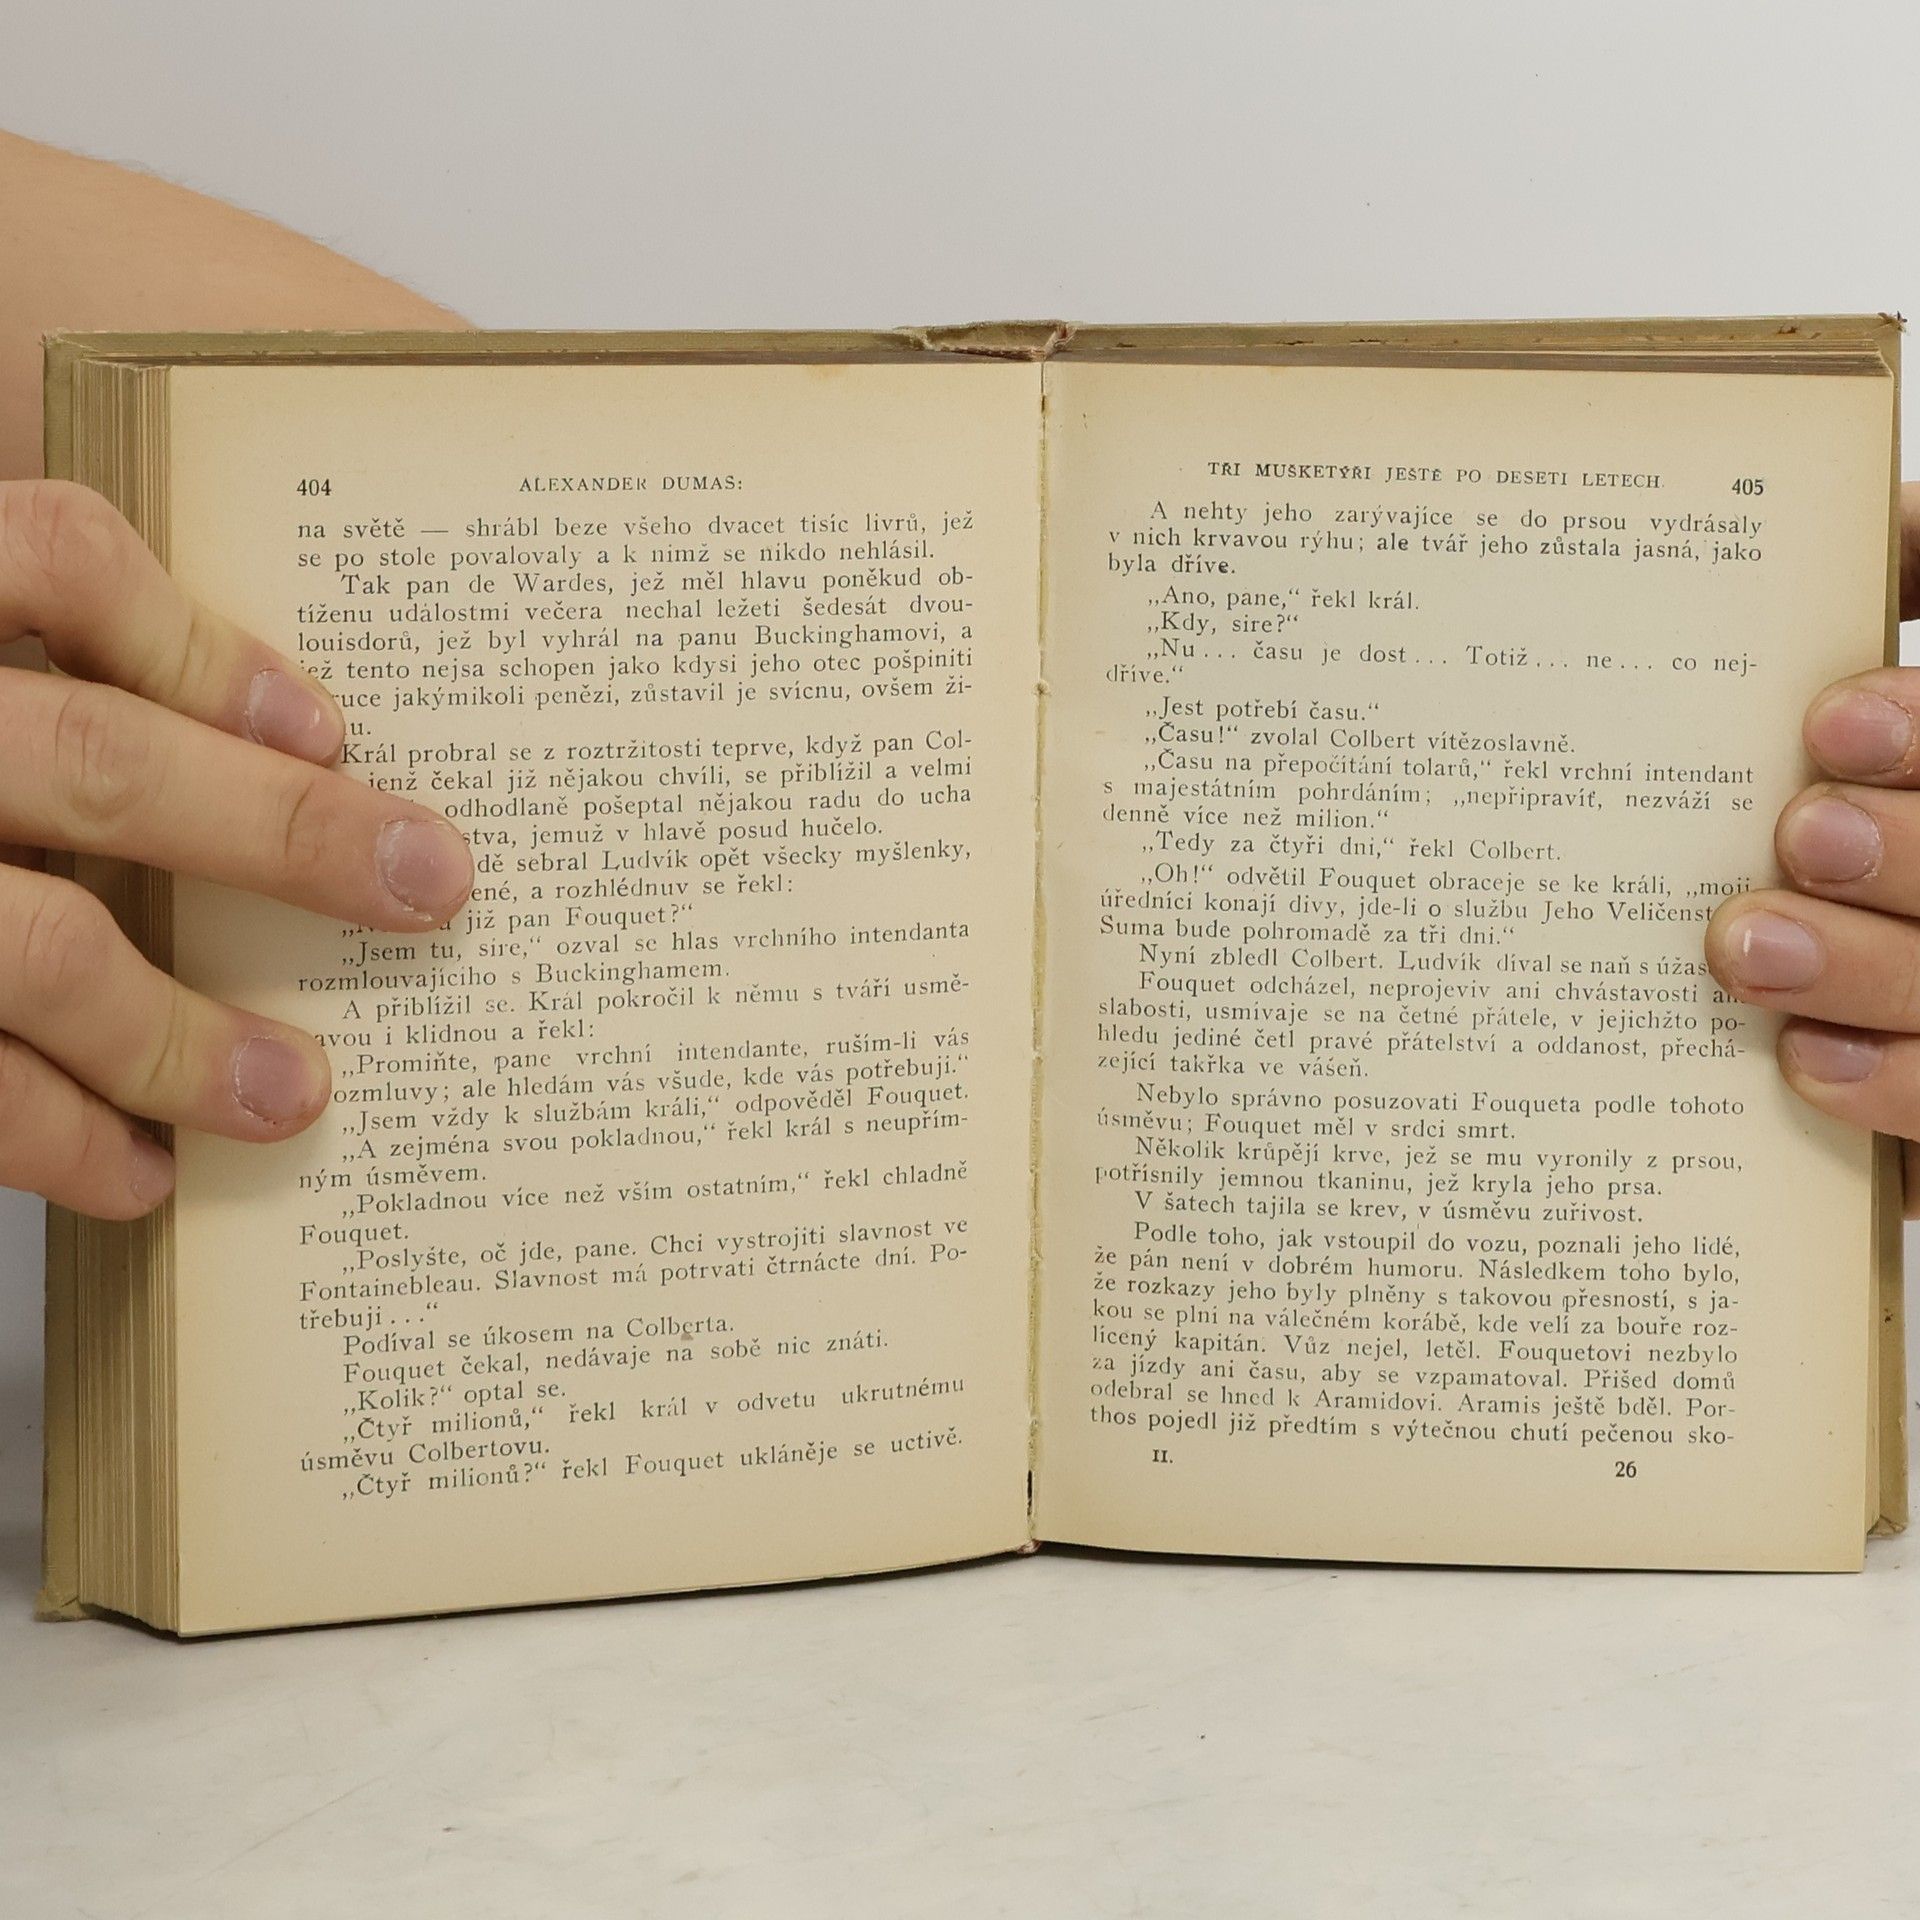 404 ALEXANDER DUMAS:
na světě — shrábl beze všeho dvacet tisíc livrů, jež
se po stole povalovaly a k nimž se nikdo nehlásil.
Tak pan de Wardes, jež měl hlavu poněkud ob-
tíženu událostmi večera nechal ležeti šedesát dvou-
louisdorů, jež byl vyhrál na panu Buckinghamovi, a
jež tento nejsa schopen jako kdysi jeho otec pošpiniti
ruce jakýmikoli penězi, zůstavil je svícnu, ovšem ži-
Král probral se z roztržitosti teprve, když pan Col-
jenž čekal již nějakou chvíli, se přiblížil a velmi
odhodlaně pošeptal nějakou radu do ucha
jemuž v hlavě posud hučelo.
sebral Ludvík opět všecky myšlenky,
a rozhlédnuv se řekl:
již pan Fouquet?“
„Jsem tu, sire,“ ozval se hlas vrchního intendanta
rozmlouvajícího s Buckinghamem.
A přiblížil se. Král pokročil k němu s tváří usmě-
vavou i klidnou a řekl:
„Promiňte, pane vrchní intendante, ruším-li vás
rozmluvy; ale hledám vás všude, kde vás potřebuji.“
„Jsem vždy k službám králi,“ odpověděl Fouquet.
„A zejména svou pokladnou,“ řekl král s neupřím-
ným úsměvem.
„Pokladnou více než vším ostatním,“ řekl chladně
Fouquet.
„Poslyšte, oč jde, pane. Chci vystrojiti slavnost ve
Fontainebleau. Slavnost má potrvati čtrnácte dní. Po-
třebuji . . .“
Podíval se úkosem na Colberta.
Fouquet čekal, nedávaje na sobě nic znáti.
„Kolik?“ optal se.
„Čtyř milionů,“ řekl král v odvetu ukrutnému
úsměvu Colbertovu.
„Čtyř milionů?“ řekl Fouquet ukláněje se uctivě.
TŘI MUŠKETÝŘI JEŠTĚ PO DESETI LETECH. 405
A nehty jeho zarývajíce se do prsou vydrásaly
v nich krvavou rýhu; ale tvář jeho zůstala jasná, jako
byla dříve.
„Ano, pane,“ řekl král.
„Kdy, sire?“
„Nu . . . času je dost . . . Totiž . . . ne . . . co nej-
dříve.“
„Jest potřebí času.“
„Času!“ zvolal Colbert vítězoslavně.
„Času na přepočítání tolarů,“ řekl vrchní intendant
s majestátním pohrdáním; „nepřipravíť, nezváží se
denně více než milion.“
„Tedy za čtyři dni,“ řekl Colbert.
„Oh!“ odvětil Fouquet obraceje se ke králi, „moji
úředníci konají divy, jde-li o službu Jeho
Suma bude pohromadě za tři dni.“
Nyní zbledl Colbert. Ludvík díval se naň s
Fouquet odcházel, neprojeviv ani chvástavosti ani
slabosti, usmívaje se na četné přátele, v jejichžto po-
hledu jediné četl pravé přátelství a oddanost, přechá-
zející takřka ve vášeň.
Nebylo správno posuzovati Fouqueta podle tohoto
úsměvu; Fouquet měl v srdci smrt.
Několik krůpějí krve, jež se mu vyronily z prsou,
potřísnily jemnou tkaninu, jež kryla jeho prsa.
V šatech tajila se krev, v úsměvu zuřivost.
Podle toho, jak vstoupil do vozu, poznali jeho lidé,
že pán není v dobrém humoru. Následkem toho bylo,
že rozkazy jeho byly plněny s takovou přesností, s ja-
kou se plní na válečném korábě, kde velí za bouře roz-
lícený kapitán. Vůz nejel, letěl. Fouquetovi nezbylo
za jízdy ani času, aby se vzpamatoval. Přišed domů
odebral se hned k Aramidovi. Aramis ještě bděl. Por-
thos pojedl již předtím s výtečnou chutí pečenou sko-
II. 26